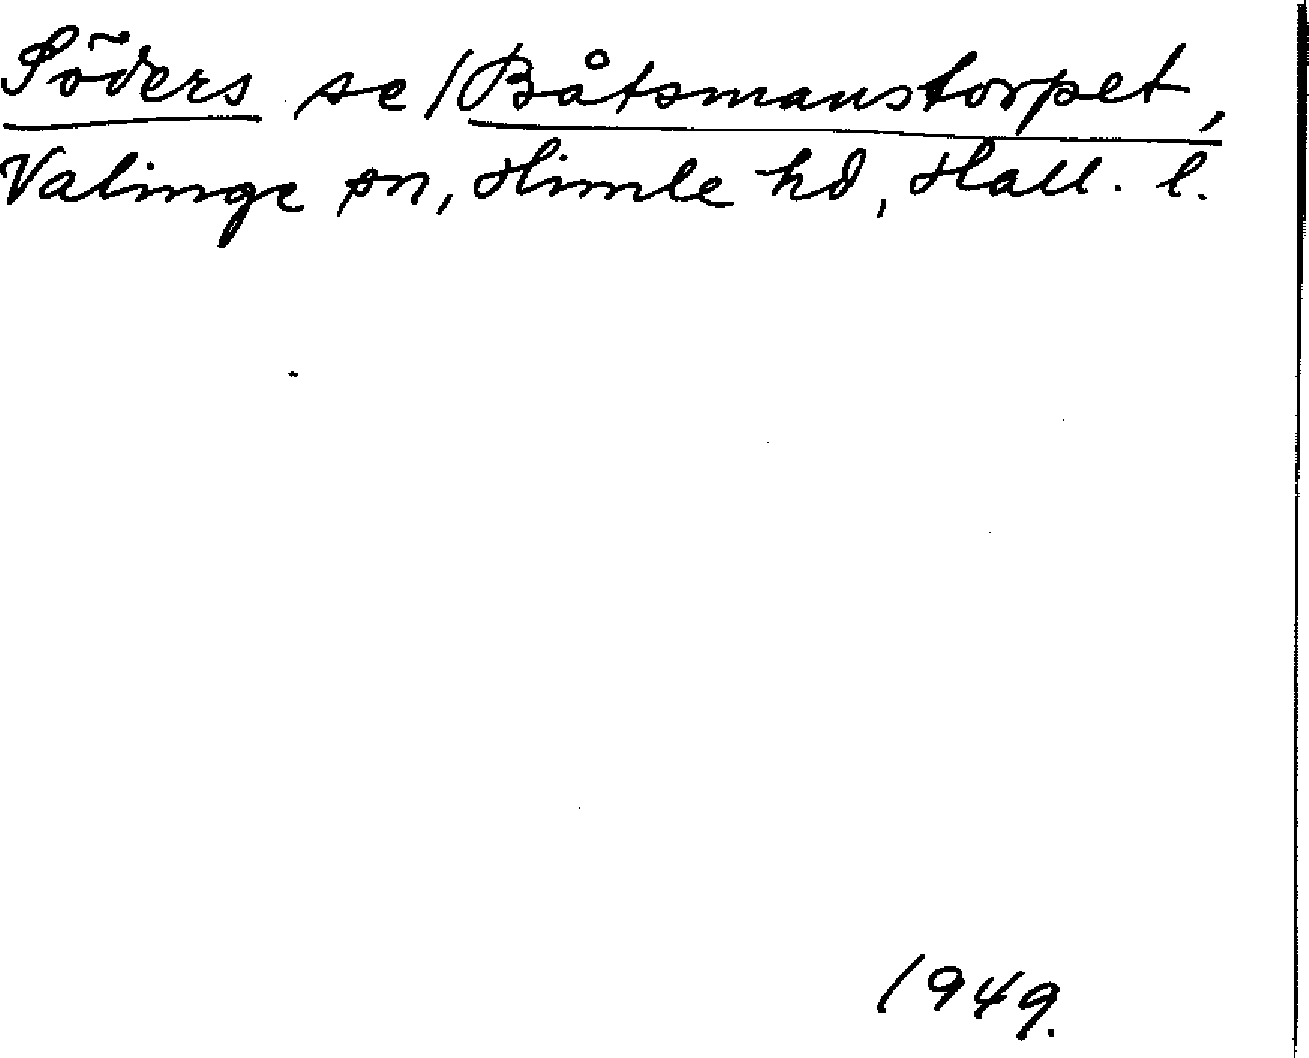 Söders se/Båtsmanstorpet,
Valinge sn, Himle hd, Hall. l.
1949.